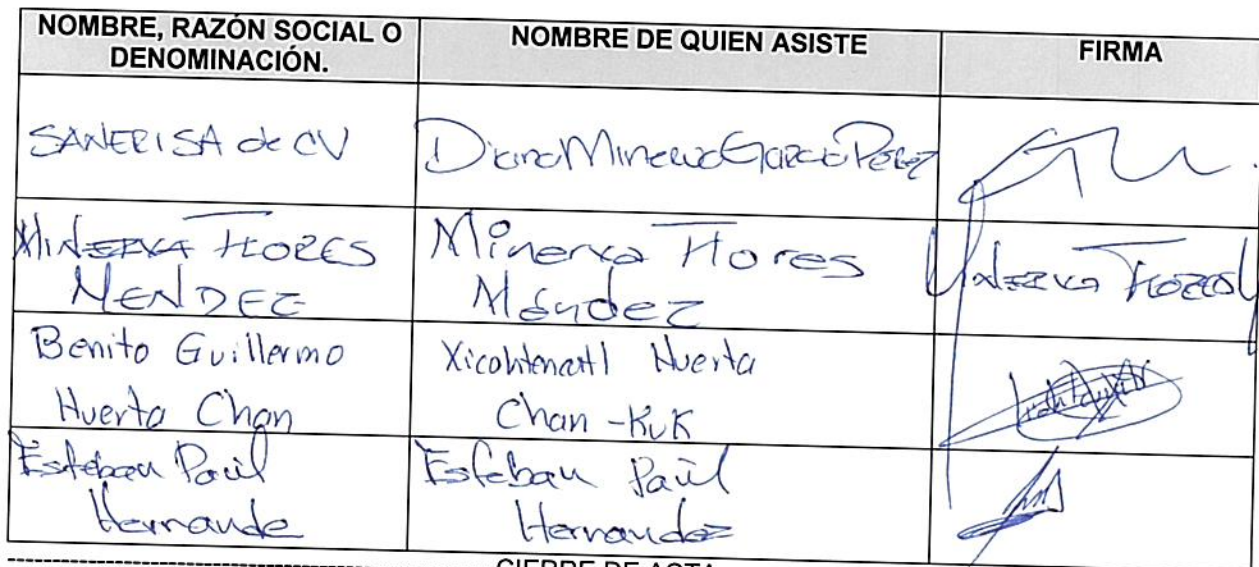 NOMBRE, RAZÓN SOCIAL O
DENOMINACIÓN.
NOMBRE DE QUIEN ASISTE
FIRMA
SANERI SA de CV
Diana Minerva García Pérez
MINERVA FLORES
MENDEZ
Minerva Flores
Méndez
MINERVA FLORES
Benito Guillermo
Huerta Chan
Xicohtencatl Huerta
Chan-Kuk
Esteban Paúl
Hernande
Esteban Paúl
Hernandez
CIERRE DE ACTA